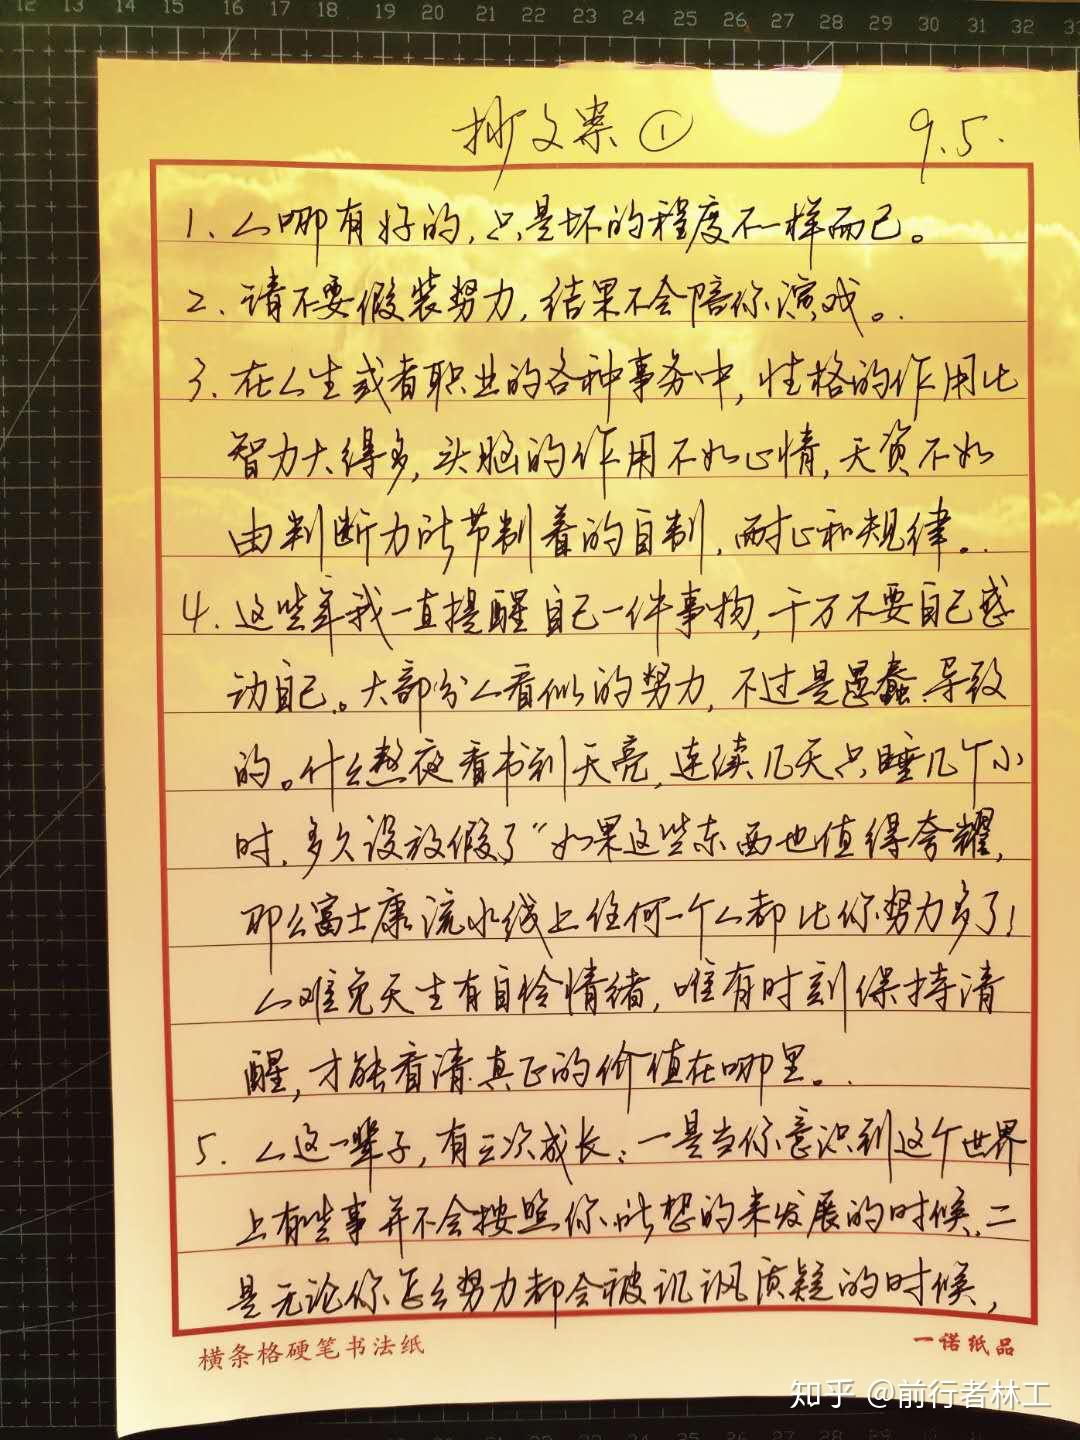 12 13 14 15 16 17 18 19 20 21 22 23 24 25 26 27 28 29 30 31 32 33
抄文案① 9.5.
1. 人哪有好的,只是坏的程度不一样而已。
2. 请不要假装努力,结果不会陪你演戏。
3. 在人生或者职业的各种事务中,性格的作用比
智力大得多,头脑的作用不如心情,天资不如
由判断力所节制着的自制,耐心和规律。
4. 这些年我一直提醒自己一件事物,千万不要自己感
动自己。大部分人看似的努力,不过是愚蠢导致
的。什么熬夜看书到天亮,连续几天只睡几个小
时,多久没放假了“如果这些东西也值得夸耀,
那么富士康流水线上任何一个人都比你努力多了!
人难免天生有自怜情绪,唯有时刻保持清
醒,才能看清真正的价值在哪里。
5. 人这一辈子,有三次成长:一是当你意识到这个世界
上有些事并不会按照你所想的来发展的时候,二
是无论你怎么努力都会被讥讽质疑的时候,
横条格硬笔书法纸 一诺纸品
知乎 @前行者林工